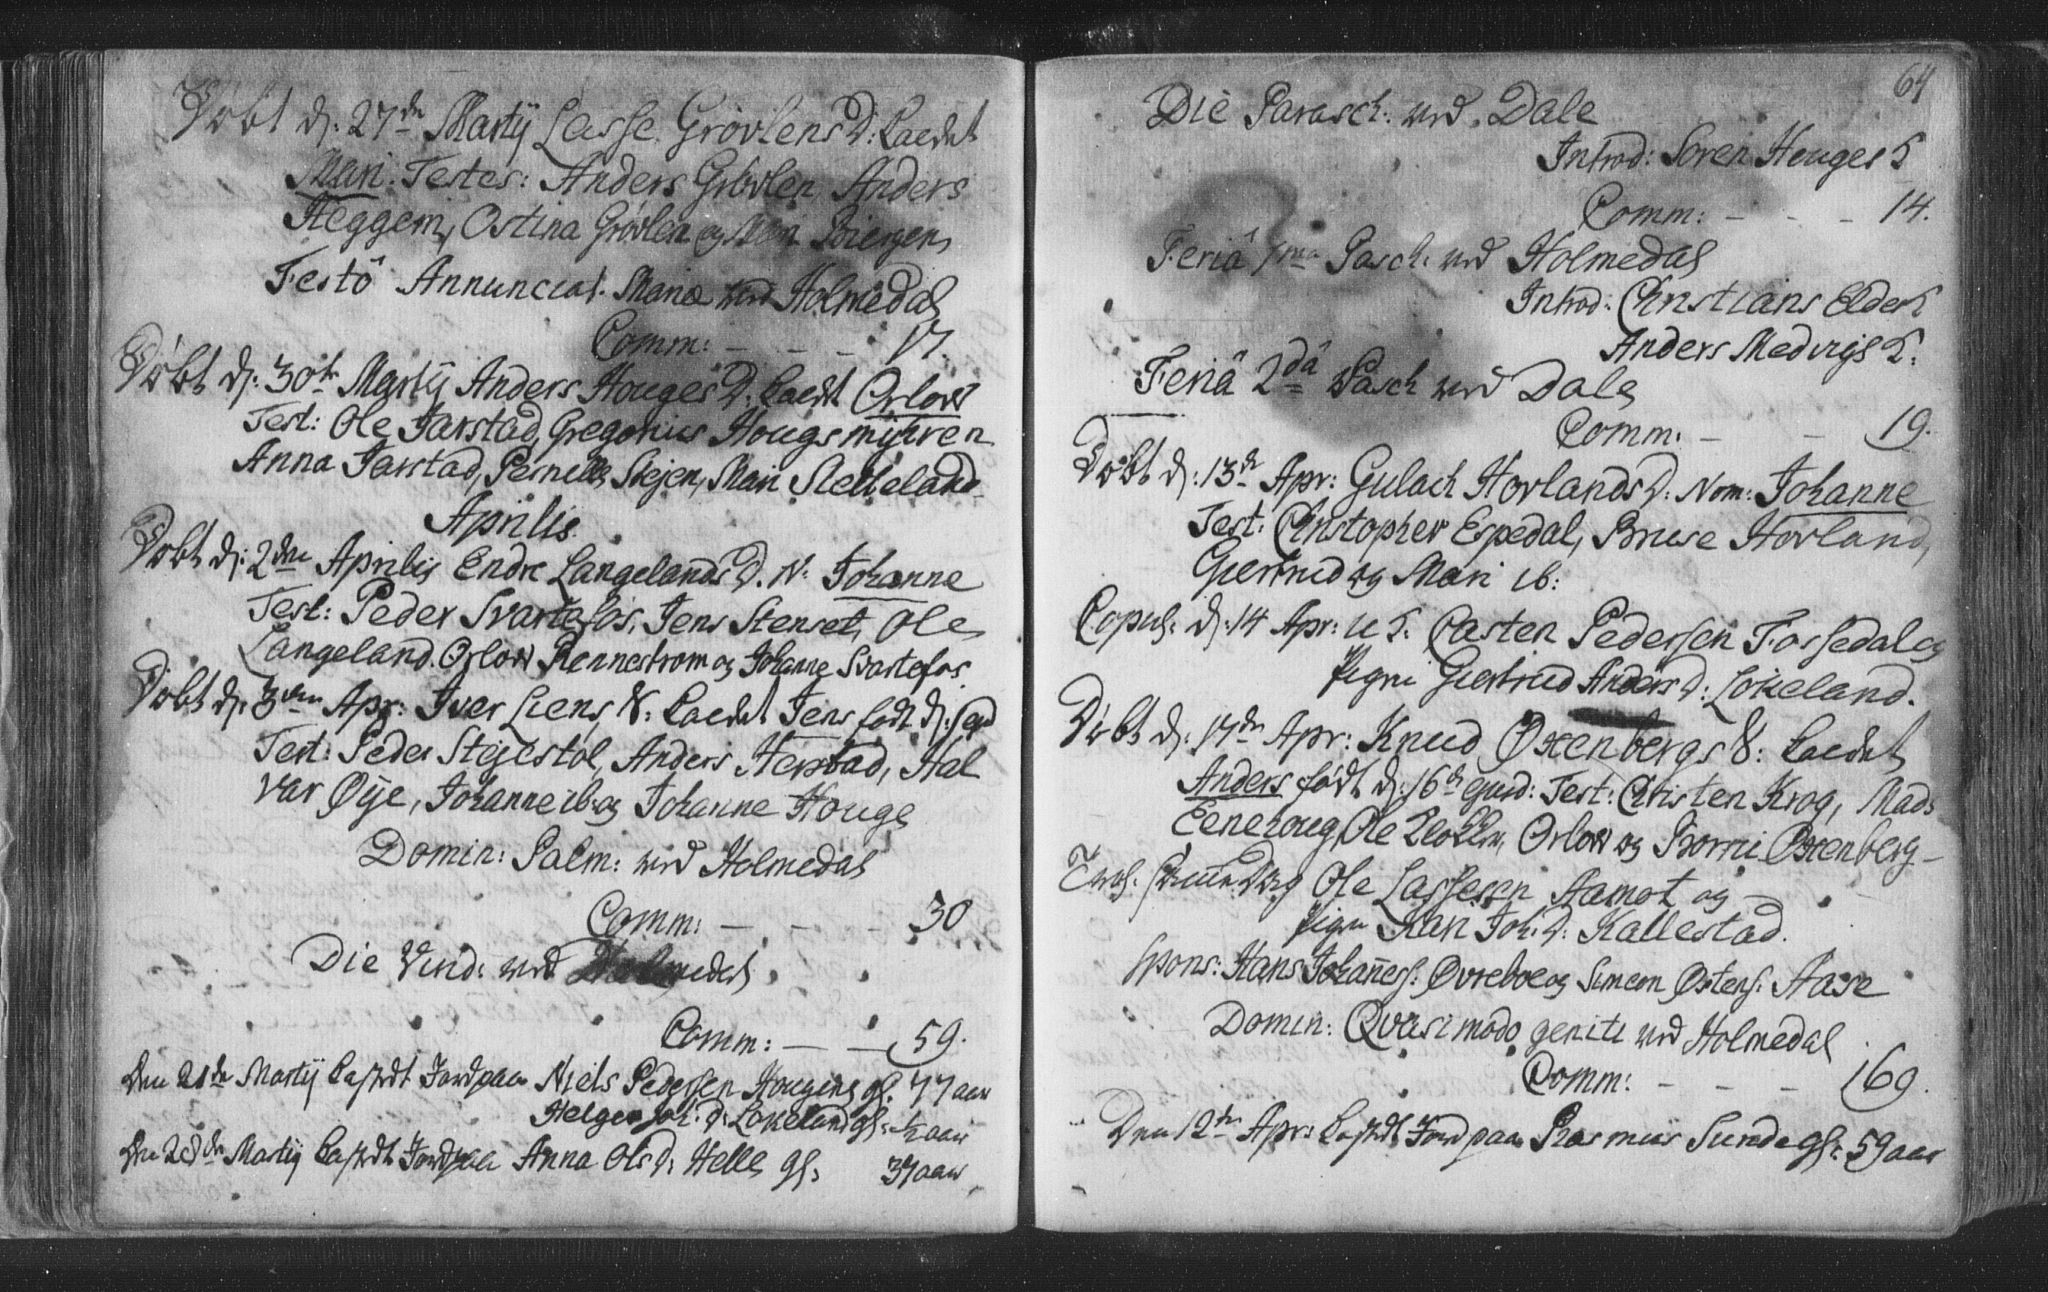 Døbt d: 27de Martij Lasse Grøvlens D: kaldet
Mari. Testes: Anders Grøvlen, Anders
Heggem, Ostina Grøvlen og Mari Biergen,
Festô Annunciat. Mariæ ved Holmedal
Comm: - - - 17.
Døbt d: 30te Martij Anders Houges D. kaldt Orlow
Test: Ole Jarstad, Gregorius Hougsmyhren
Anna Jarstad, Pernelle Stejen, Mari Sletteland
Aprilis.
Døbt d: 2den Aprilis Endre Langelands D. N: Johanne
Test: Peder Svartefos, Jens Stenset, Ole
Langeland. Orlow Rennestrom og Johanne Svartefos
Døbt d: 3den Apr: Iver Liens S: kaldet Jens født d:
Test: Peder Stejestøl, Anders Herstad, Hal
var Øije, Johanne ib: og Johanne Houge
Domin: Palm: ved Holmedal
Comm: - - - 30
Die Virid: ved Holmedal
Comm: - - 59.
Den 21de Martij kastedt Jord paa Niels Pedersen Hougens gl. 77 aar
Helge Joh: D: Lokeland gl: ½ aar
Den 28de Martij kastedt Jord paa Anna Ols D: Helle gl: 37 aar
64
Die Parasch: ved Dale
Introd: Soren Houges K
Comm: - - - 14.
Feriâ 1ma Pasch: ved Holmedal
Introd: Christians Elde K
Anders Medvigs K:
Feriâ 2dâ Pasch ved Dale
Comm: - - 19.
Døbt d: 13de Apr: Gulach Hovlands D: Nom: Johanne
Test: Christopher Espedal, Bruse Hovland,
Giertrud og Mari ib:
Copul: d: 14 Apr: u K: Casten Pedersen Fossedal og
Pigen Giertrud Anders D: Lokeland.
Døbt d: 17de Apr: Knud Oxenbergs S: kaldet
Anders født d: 16de ejusd: Test: Christen Krog, Mads
Eenehoug, Ole Klokker, Orlow og Borni Oxenberg
Trol: Ole Lassesen Aamot og
Pigen Kari Joh: D: Kallestad.
Spons: Hans Johannes: Øvreboe og Simeon Østens: Aase
Domin: Qvasimodo geniti ved Holmedal
Comm: - - - 169.
Den 12te Apr: kastedt Jord paa Rasmus Sunde gl: 59 aar